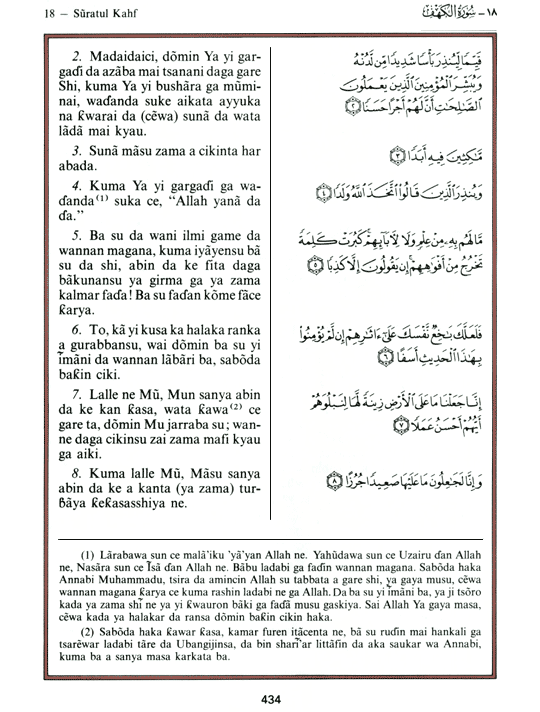 18 — Sūratul Kahf
١٨ — سُورَةُ الكَهْف
2. Madaidaici, dōmin Ya yi gar-
gaɗi da azāba mai tsanani daga gare
Shi, kuma Ya yi bushāra ga mūmi-
nai, waɗanda suke aikata ayyuka
na ƙwarai da (cēwa) sunā da wata
lādā mai kyau.
3. Sunā māsu zama a cikinta har
abada.
4. Kuma Ya yi gargaɗi ga wa-
ɗanda⁽¹⁾ suka ce, “Allah yanā da
ɗa.”
5. Ba su da wani ilmi game da
wannan magana, kuma iyāyensu bā
su da shi, abin da ke fita daga
bākunansu ya girma ga ya zama
kalmar faɗa! Ba su faɗan kōme fāce
ƙarya.
6. To, kā yi kusa ka halaka ranka
a gurabbansu, wai dōmin ba su yi
īmāni da wannan lābāri ba, sabōda
baƙin ciki.
7. Lalle ne Mū, Mun sanya abin
da ke kan ƙasa, wata ƙawa⁽²⁾ ce
gare ta, dōmin Mu jarraba su; wan-
ne daga cikinsu zai zama mafi kyau
ga aiki.
8. Kuma lalle Mū, Māsu sanya
abin da ke a kanta (ya zama) tur-
ɓāya ƙeƙasasshiya ne.
قَيِّمًا لِّيُنذِرَ بَأْسًا شَدِيدًا مِّن لَّدُنْهُ
وَيُبَشِّرَ الْمُؤْمِنِينَ الَّذِينَ يَعْمَلُونَ
الصَّالِحَاتِ أَنَّ لَهُمْ أَجْرًا حَسَنًا ٢
مَّاكِثِينَ فِيهِ أَبَدًا ٣
وَيُنذِرَ الَّذِينَ قَالُوا اتَّخَذَ اللَّهُ وَلَدًا ٤
مَّا لَهُم بِهِ مِنْ عِلْمٍ وَلَا لِآبَائِهِمْ كَبُرَتْ كَلِمَةً
تَخْرُجُ مِنْ أَفْوَاهِهِمْ إِن يَقُولُونَ إِلَّا كَذِبًا ٥
فَلَعَلَّكَ بَاخِعٌ نَّفْسَكَ عَلَىٰ آثَارِهِمْ إِن لَّمْ يُؤْمِنُوا
بِهَٰذَا الْحَدِيثِ أَسَفًا ٦
إِنَّا جَعَلْنَا مَا عَلَى الْأَرْضِ زِينَةً لَّهَا لِنَبْلُوَهُمْ
أَيُّهُمْ أَحْسَنُ عَمَلًا ٧
وَإِنَّا لَجَاعِلُونَ مَا عَلَيْهَا صَعِيدًا جُرُزًا ٨
(1) Lārabawa sun ce malā'iku 'yā'yan Allah ne. Yahūdawa sun ce Uzairu ɗan Allah
ne, Nasāra sun ce Īsā ɗan Allah ne. Bābu ladabi ga faɗin wannan magana. Sabōda haka
Annabi Muhammadu, tsira da amincin Allah su tabbata a gare shi, ya gaya musu, cēwa
wannan magana ƙarya ce kuma rashin ladabi ne ga Allah. Da ba su yi īmāni ba, ya ji tsōro
kada ya zama shī ne ya yi ƙwauron bāki ga faɗā musu gaskiya. Sai Allah Ya gaya masa,
cēwa kada ya halakar da ransa dōmin baƙin cikin haka.
(2) Sabōda haka ƙawar ƙasa, kamar furen itācenta ne, bā su ruɗin mai hankali ga
tsarēwar ladabi tāre da Ubangijinsa, da bin sharī'ar littāfin da aka saukar wa Annabi,
kuma ba a sanya masa karkata ba.
434